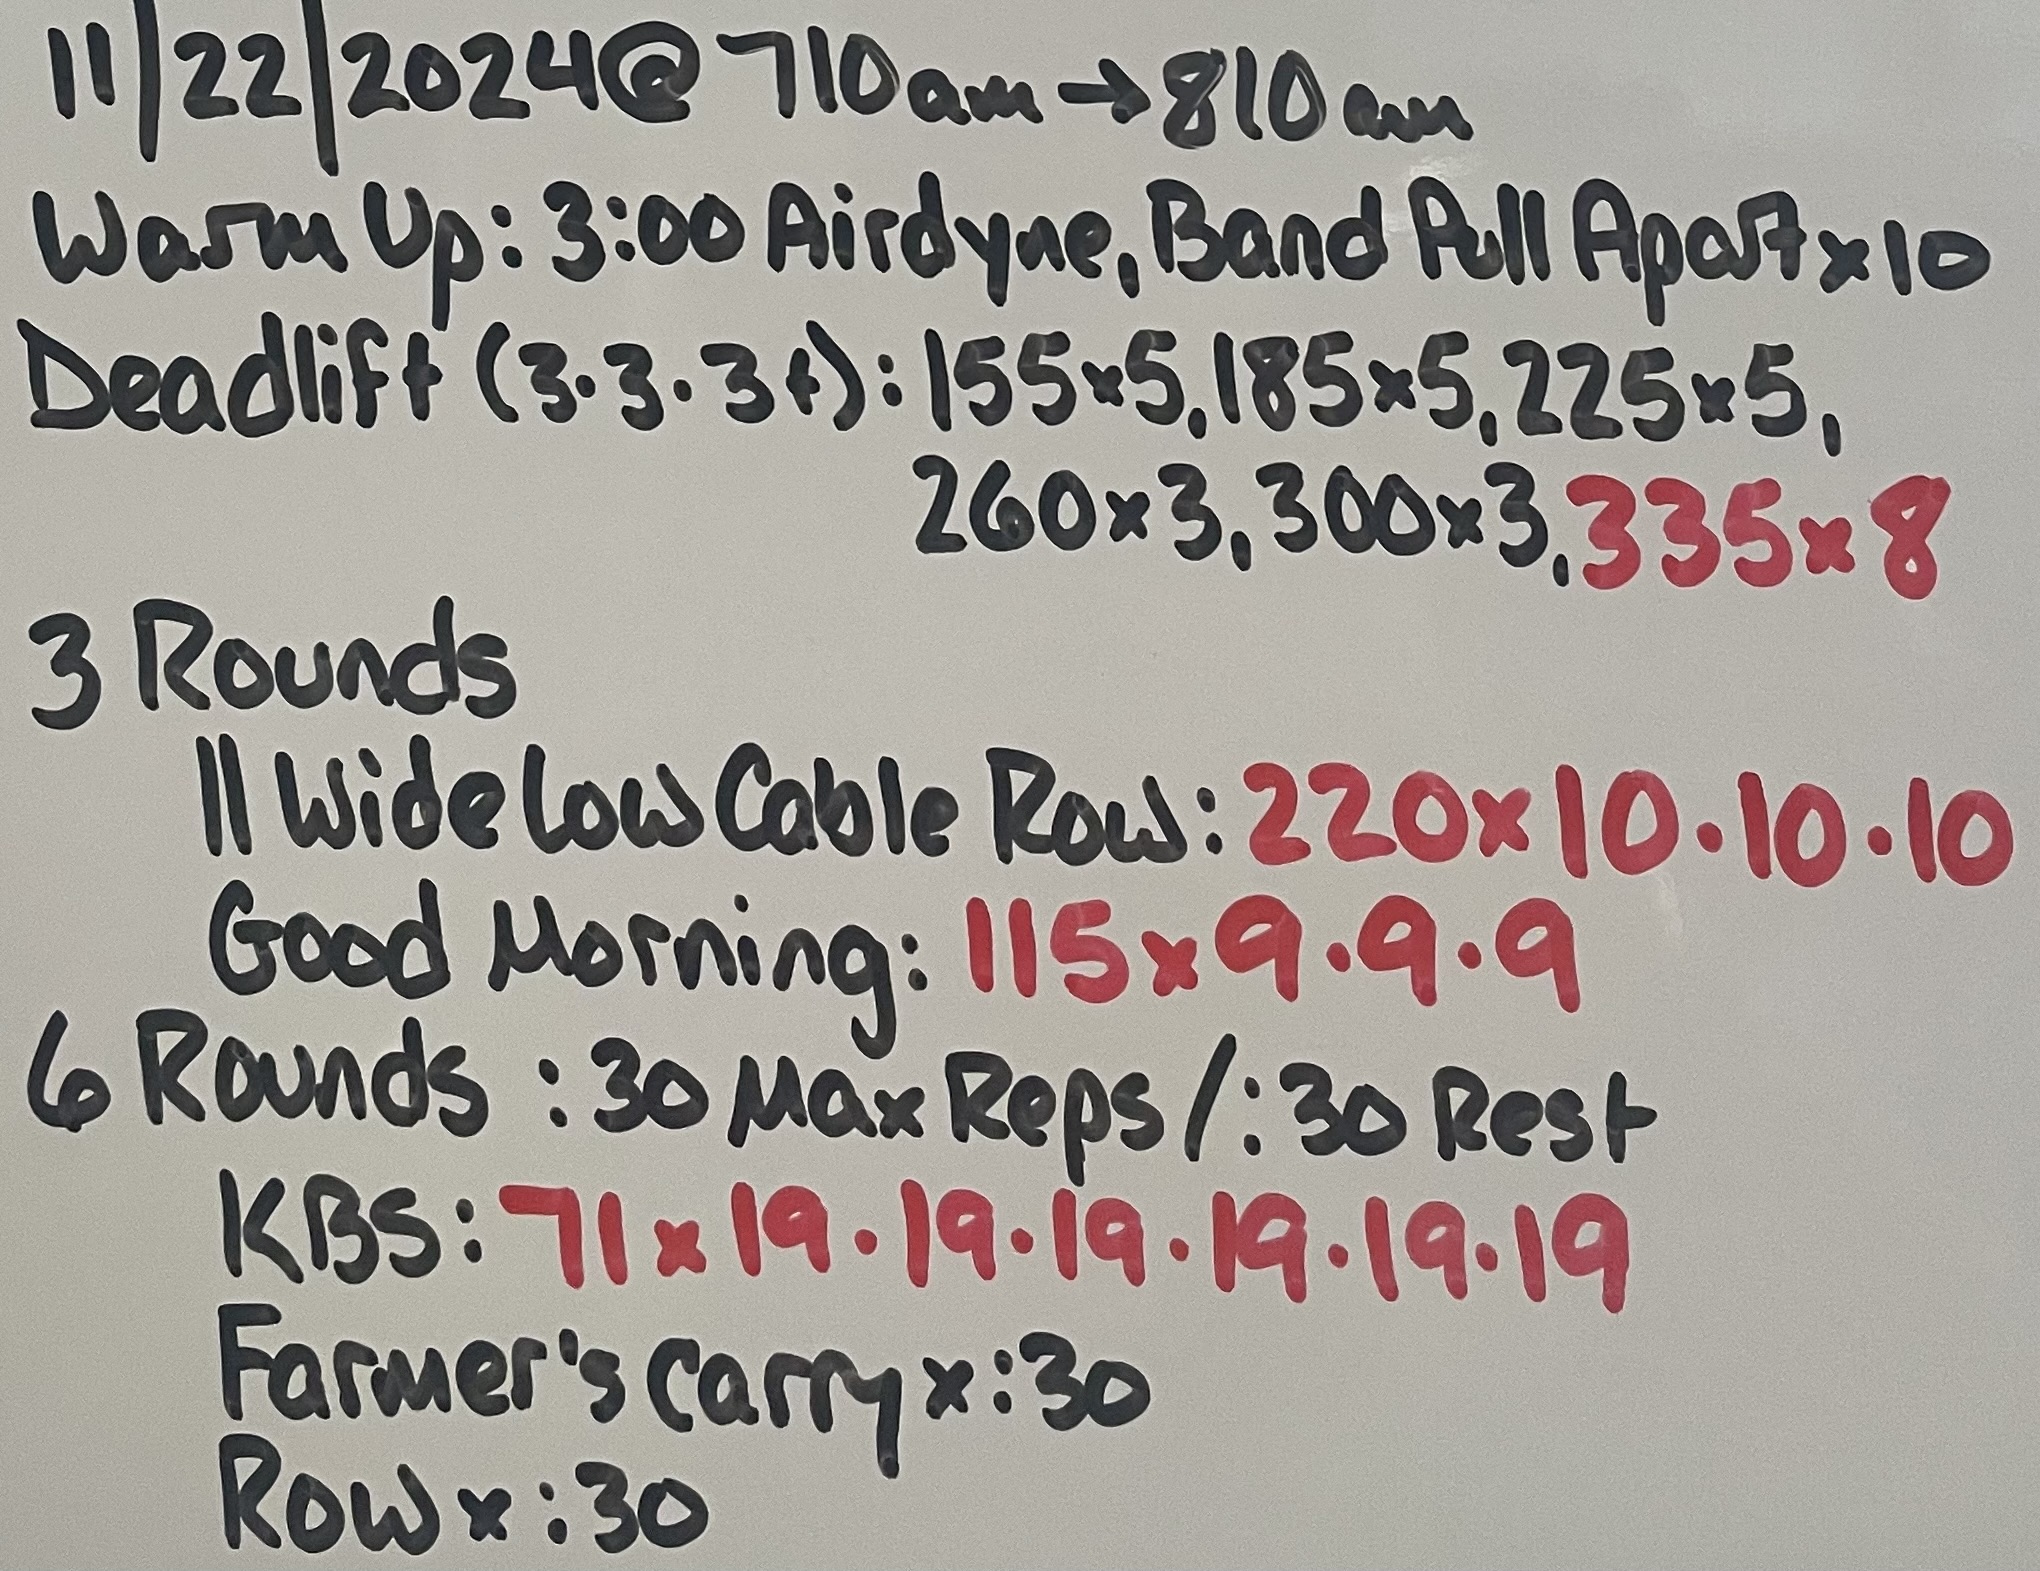 11/22/2024@710am→810am
Warm Up: 3:00 Airdyne, Band Pull Apart x10
Deadlift (3·3·3+): 155x5, 185x5, 225x5,
260x3, 300x3, 335x8
3 Rounds
|| Wide Low Cable Row: 220x10·10·10
Good Morning: 115x9·9·9
6 Rounds :30 Max Reps/:30 Rest
KBS: 71x19·19·19·19·19·19
Farmer's Carry x:30
Row x:30